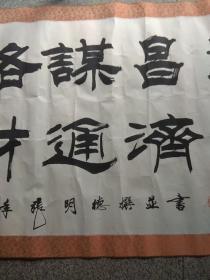 謀昌
才逢濟
年張明德撰並書